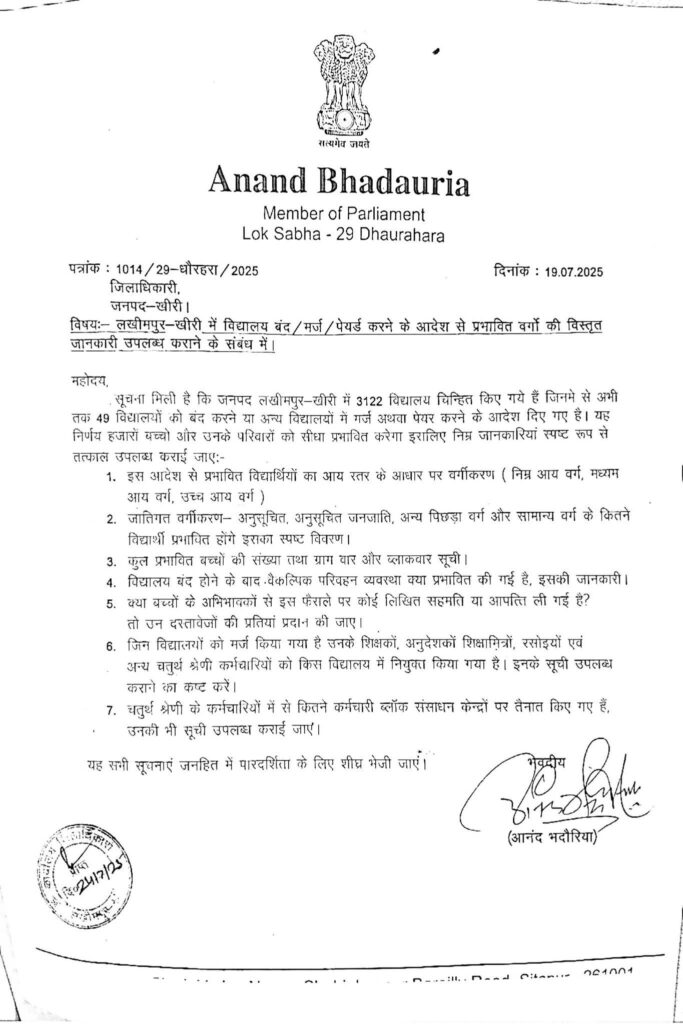 सत्यमेव जयते
Anand Bhadauria
Member of Parliament
Lok Sabha - 29 Dhaurahara
पत्रांक : 1014/29-धौरहरा/2025 दिनांक : 19.07.2025
जिलाधिकारी,
जनपद-खीरी।
विषयः- लखीमपुर-खीरी में विद्यालय बंद/मर्ज/पेयर्ड करने के आदेश से प्रभावित वर्गो की विस्तृत
जानकारी उपलब्ध कराने के संबंध में।
महोदय,
सूचना मिली है कि जनपद लखीमपुर-खीरी में 3122 विद्यालय चिन्हित किए गये हैं जिनमे से अभी
तक 49 विद्यालयों को बंद करने या अन्य विद्यालयों में मर्ज अथवा पेयर करने के आदेश दिए गए है। यह
निर्णय हजारों बच्चो और उनके परिवारों को सीधा प्रभावित करेगा इसलिए निम्न जानकारियां स्पष्ट रूप से
तत्काल उपलब्ध कराई जाए:-
1. इस आदेश से प्रभावित विद्यार्थियों का आय स्तर के आधार पर वर्गीकरण ( निम्न आय वर्ग, मध्यम
आय वर्ग, उच्च आय वर्ग )
2. जातिगत वर्गीकरण- अनुसूचित, अनुसूचित जनजाति, अन्य पिछड़ा वर्ग और सामान्य वर्ग के कितने
विद्यार्थी प्रभावित होंगे इसका स्पष्ट विवरण।
3. कुल प्रभावित बच्चों की संख्या तथा ग्राम वार और ब्लाकवार सूची।
4. विद्यालय बंद होने के बाद वैकल्पिक परिवहन व्यवस्था क्या प्रभावित की गई है, इसकी जानकारी।
5. क्या बच्चों के अभिभावकों से इस फैसले पर कोई लिखित सहमति या आपत्ति ली गई है?
तो उन दस्तावेजों की प्रतियां प्रदान की जाए।
6. जिन विद्यालयों को मर्ज किया गया है उनके शिक्षकों, अनुदेशकों शिक्षामित्रों, रसोइयों एवं
अन्य चतुर्थ श्रेणी कर्मचारियों को किस विद्यालय में नियुक्त किया गया है। इनके सूची उपलब्ध
कराने का कष्ट करें।
7. चतुर्थ श्रेणी के कर्मचारियों में से कितने कर्मचारी ब्लॉक संसाधन केन्द्रों पर तैनात किए गए हैं,
उनकी भी सूची उपलब्ध कराई जाएं।
यह सभी सूचनाएं जनहित में पारदर्शिता के लिए शीघ्र भेजी जाएं।
भवदीय
(आनंद भदौरिया)
प्राप्त
24/7/25
Road, Sitapur 261001